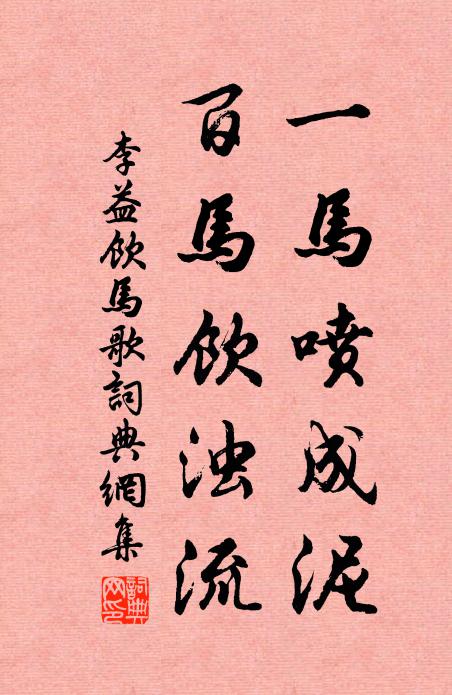 一馬喷成泥
百馬飲浊流
李益飲馬歌詞典網集
詞典网印